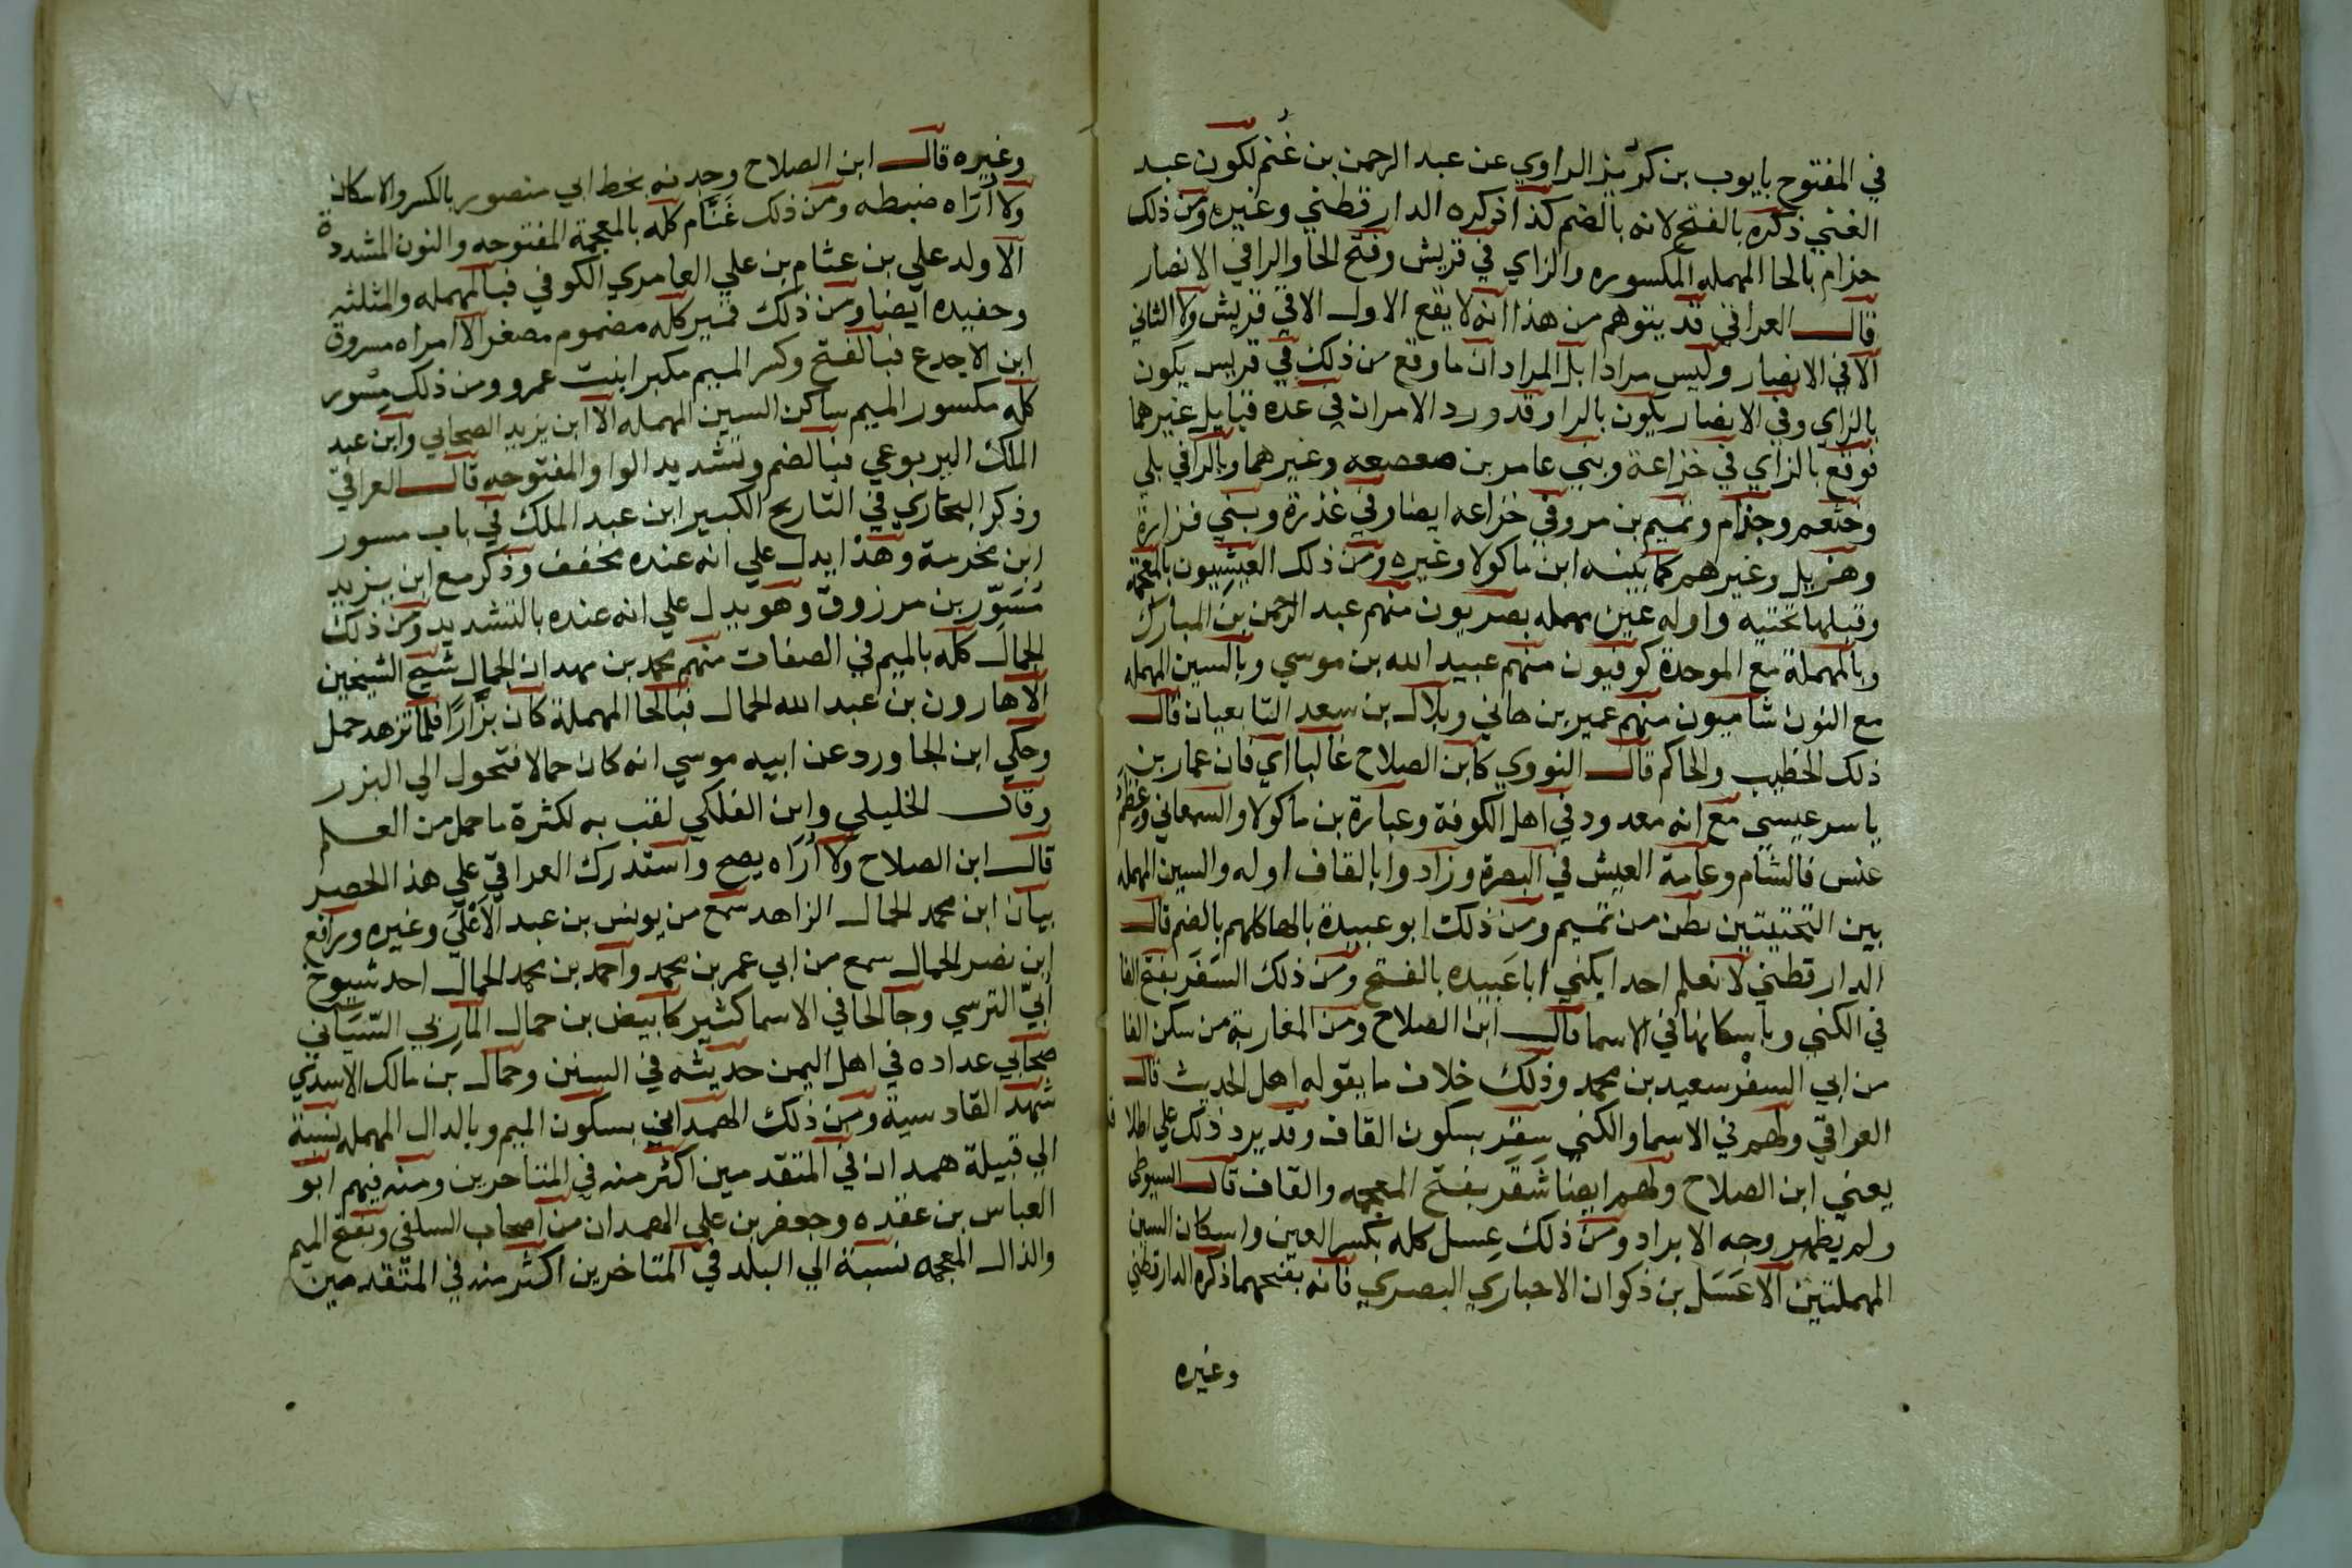 في المفتوح بايوب بن كريز الراوي عن عبد الرحمن بن غنم لكون عبد
الغني ذكره بالفتح لانه بالضم كذا ذكره الدارقطني وغيره ومن ذلك
حزام بالحا المهمله المكسوره والزاي في قريش وفتح الحا والرا في الانصار
قال العراقي قد يتوهم من هذا انه لا يقع الاول الا في قريش ولا الثاني
الا في الانصار وليس مرادا بل المراد ان ما وقع من ذلك في قريس يكون
بالزاي وفي الانصار يكون بالرا وقد ورد الامران في عده قبايل غيرهما
فوقع بالزاي في خزاعة وبني عامر بن صعصعه وغيرهما وبالرا في بلي
وخثعم وجذام وتميم بن مر وفي خزاعه ايضا وفي عذرة وبني فزارة
وهزيل وغيرهم كما بينه ابن ماكولا وغيره ومن ذلك العيشيون بالمعجمة
وقبلها تحتيه واوله عين مهمله بصريون منهم عبد الرحمن بن المبارك
وبالمهملة مع الموحدة كوفيون منهم عبيد الله بن موسي وبالسين المهمله
مع النون شاميون منهم عمير بن هاني وبلال بن سعد التابعيان قال
ذلك الخطيب والحاكم قال النووي كابن الصلاح غالبا اي فان عمار بن
ياسر عيسي مع انه معدود في اهل الكوفة وعبارة بن ماكولا والسمعاني وعظم
عنس فالشام وعامة العيش في البصرة وزاد وا بالقاف اوله والسين المهمله
بين التحتيتين بطن من تميم ومن ذلك ابو عبيدة بالها كلهم بالضم قال
الدارقطني لا نعلم احدا يكني ابا عَبيده بالفتح ومن ذلك السَفَر بفتح الفا
في الكني وباسكانها في الاسما قال ابن الصلاح ومن المغاربة من سكن الفا
من ابي السفْر سعيد بن محمد وذلك خلاف ما يقوله اهل الحديث قال
العراقي ولهم في الاسما والكني سقر بسكون القاف وقد يرد ذلك علي اطلا
يعني ابن الصلاح ولهم ايضا شَقَر بفتح المعجمه والقاف قال السيوطي
ولم يظهر وجه الايراد ومن ذلك عِسل كله بكسر العين واسكان السين
المهملتين الا عَسَل بن ذكوان الاخباري البصري فانه بفتحهما ذكره الدارقطني
وغيره
وغيره قال ابن الصلاح وجدته بخط ابي منصور بالكسر والاسكان
ولا أُرَاه ضبطه ومن ذلك غَنَّام كله بالمعجمة المفتوحه والنون المشددة
الا ولد علي بن عثام بن علي العامري الكوفي فبالمهمله والمثلثه
وحفيده ايضا ومن ذلك قمير كله مضموم مصغر الا امراه مسروق
ابن الاجدع فبالفتح وكسر الميم مكبر ابنت عمرو ومن ذلك مِسْور
كله مكسور الميم ساكن السين المهمله الا ابن يزيد الصحابي وابن عبد
الملك اليربوعي فبالضم وتشديد الواو المفتوحه قال العراقي
وذكر البخاري في التاريخ الكبير ابن عبد الملك في باب مسور
ابن مخرمة وهذا يدل علي انه عنده مخفف وذكر مع ابن يزيد
مُسَوَّر بن مرزوق وهو يدل علي انه عنده بالتشديد ومن ذلك
الجمال كله بالميم في الصفات منهم محمد بن مهدان الجمال شيخ الشيخين
الا هارون بن عبد الله الحمال فبالحا المهملة كان بزَّازًا فلما تزهد حمل
وحكي ابن الجاورد عن ابيه موسي انه كان حمالا فتحول الي البزر
وقال الخليلي وابن الفلكي لقب به لكثرة ما حمل من العلم
قال ابن الصلاح ولا أُرَاه يصح واستدرك العراقي علي هذا الحصر
بيان ابن محمد الحمال الزاهد سمع من يونس بن عبد الاعْلَي وغيره ورافع
ابن نصر الحمال سمع من ابي عمر بن محمد واحمد بن محمد الحمال احد شيوخ
اُبيّ الترسي وجا الحا في الاسما كثير كابيض بن حمال المارِبي السّبَاني
صحابي عداده في اهل اليمن حديثه في السنن وحمال بن مالك الاسدي
شهد القادسية ومن ذلك الهمداني بسكون الميم وبالدال المهمله نسبة
الي قبيلة همدان في المتقدمين اكثر منه في المتاخرين ومنه فيهم ابو
العباس بن عقده وجعفر بن علي الهمدان من اصحاب السلفي وبفتح الميم
والذال المعجمه نسبة الي البلد في المتاخرين اكثر منه في المتقدمين